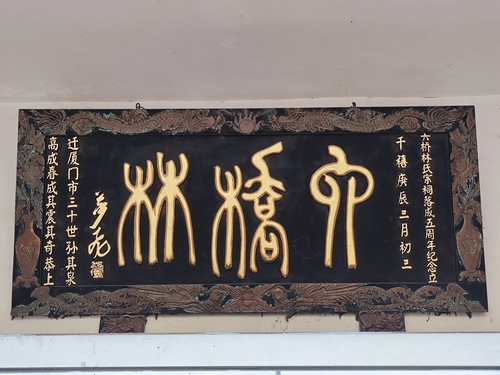 六桥林氏宗祠落成五周年纪念立
千禧庚辰三月初三
六橋林
夢飞
迁厦门市三十世孙其泉
高成春成其震其奇恭上